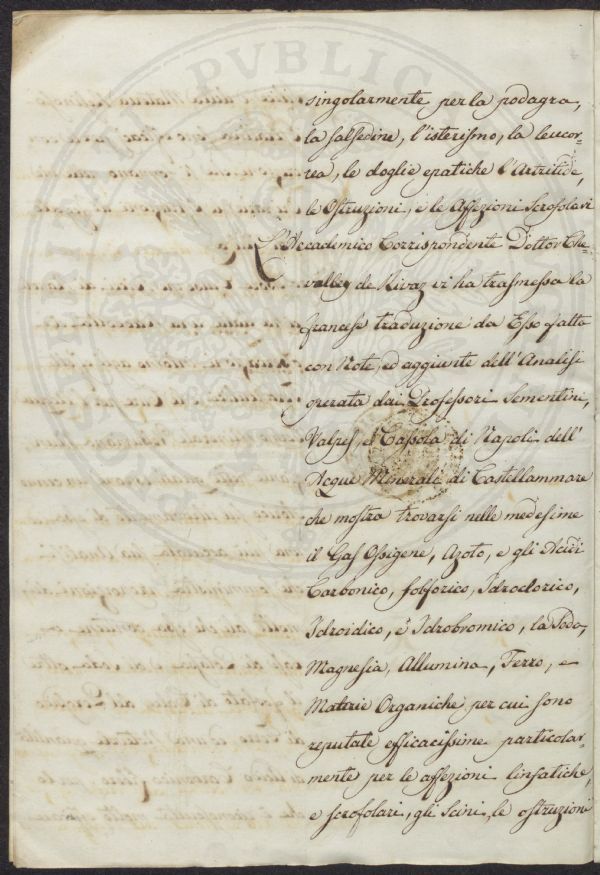 singolarmente per la podagra,
la salsedine, l'isterismo, la leucor-
rea, le doglie epatiche l'Artritide,
le Ostruzioni, e le Affezioni Scrofolari
L'Accademico Corrispondente Dottor Che-
valley de Rivaz vi ha trasmessa la
francese traduzione da Esso fatta
con Note, ed aggiunte dell'Analisi
operata dai Professori Sementini,
Vulpes, e Cassola di Napoli dell'
Acque Minerali di Castellammare
che mostra trovarsi nelle medesime
il Gas Ossigene, Azoto, e gli Acidi
Carbonico, fosforico, Idroclorico,
Idroidico, e Idrobromico, la Soda,
Magnesia, Allumina, Ferro, e
Materie Organiche per cui sono
reputate efficacissime particolar-
mente per le affezioni linfatiche,
e scrofolari, gli Scirri, le ostruzioni
PVBLIC